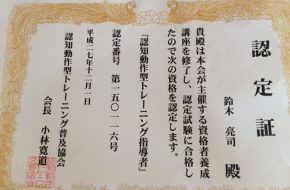 認定証
鈴木 亮司 殿
貴殿は本会が主催する資格者養成
講座を修了し、認定試験に合格し
たので次の資格を認定します。
「認知動作型トレーニング指導者」
認定番号 第一五〇一二六号
平成二七年十二月一日
認知動作型トレーニング普及協会
会長 小林 寛道